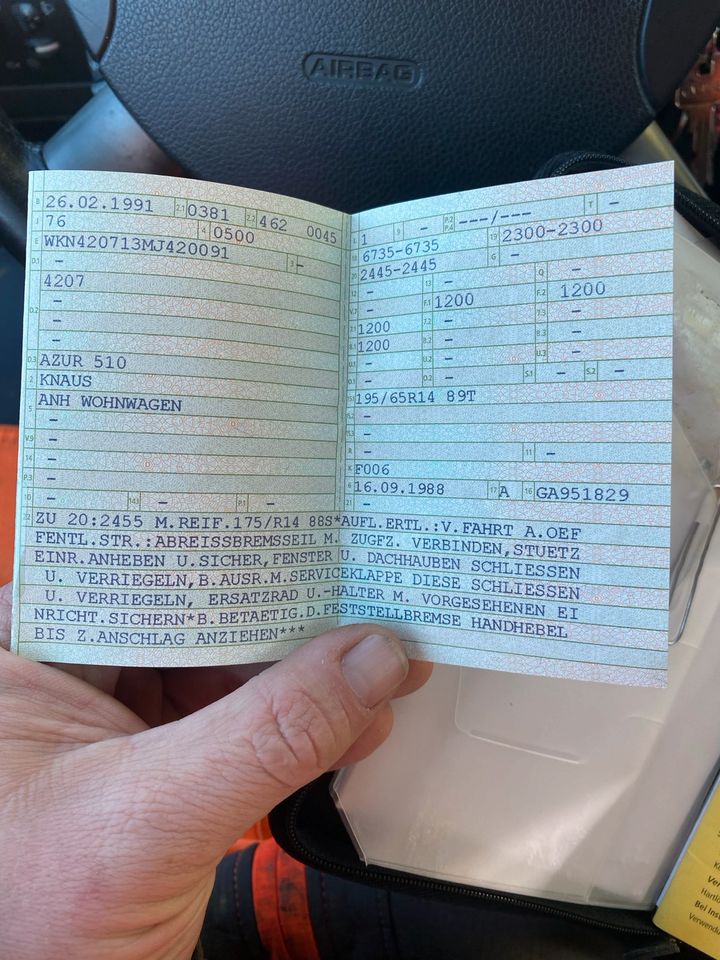 AIRBAG
B 26.02.1991 2.1 0381 2.2 462 0045
J 76 4 0500
E WKN420713MJ420091 3 -
D.1 -
4207
D.2 -
-
-
D.3 AZUR 510
2 KNAUS
5 ANH WOHNWAGEN
-
V.9 -
14 -
P.3 -
10 - 14.1 - P.1 -
L 1 9 - P.2 P.4 ---/--- T -
18 6735-6735 19 2300-2300
20 2445-2445 G -
12 - 13 - Q -
V.7 - F.1 1200 F.2 1200
7.1 1200 7.2 - 7.3 -
8.1 1200 8.2 - 8.3 -
U.1 - U.2 - U.3 -
O.1 - O.2 - S.1 - S.2 -
15.1 195/65R14 89T
15.2 -
15.3 -
R - 11 -
K F006
6 16.09.1988 17 A 16 GA951829
21 -
22 ZU 20:2455 M.REIF.175/R14 88S*AUFL.ERTL.:V.FAHRT A.OEF
FENTL.STR.:ABREISSBREMSSEIL M. ZUGFZ. VERBINDEN,STUETZ
EINR.ANHEBEN U.SICHER,FENSTER U. DACHHAUBEN SCHLIESSEN
U. VERRIEGELN,B.AUSR.M.SERVICEKLAPPE DIESE SCHLIESSEN
U. VERRIEGELN, ERSATZRAD U.-HALTER M. VORGESEHENEN EI
NRICHT.SICHERN*B.BETAETIG.D.FESTSTELLBREMSE HANDHEBEL
BIS Z.ANSCHLAG ANZIEHEN***
Bei Inst
Verwendu